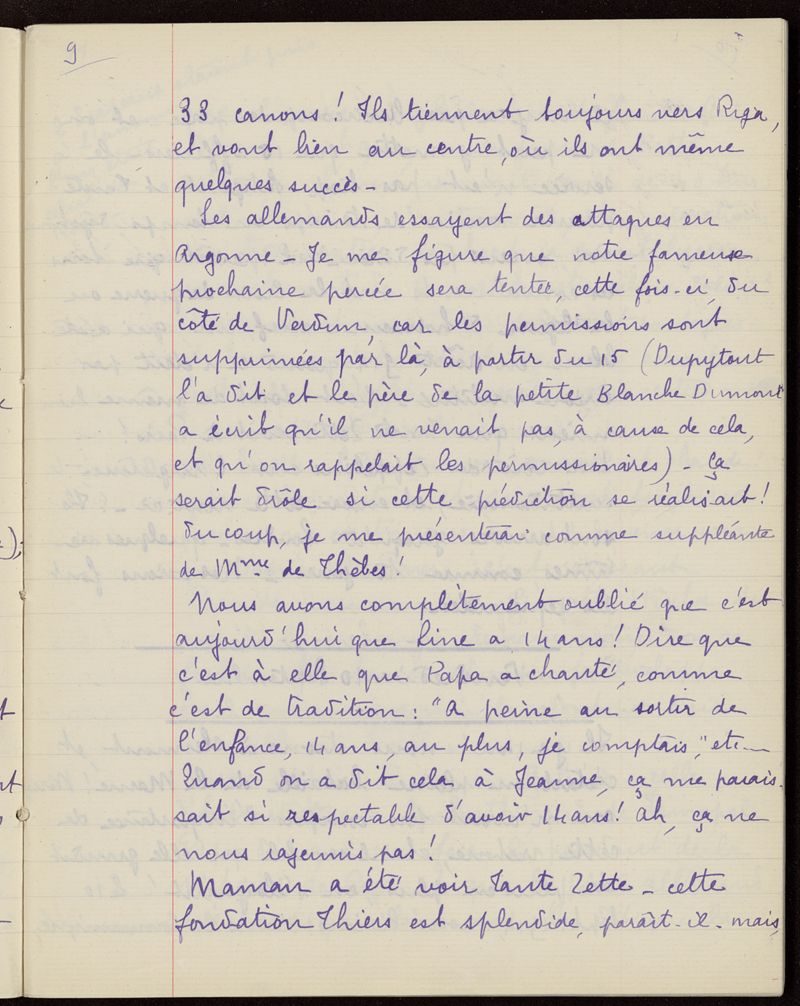 9
33 canons! Ils tiennent toujours vers Riga,
et vont bien au centre, où ils ont même
quelques succès –
Les allemands essayent des attaques en
Argonne – Je me figure que notre fameuse
prochaine percée sera tentée, cette fois-ci, du
côté de Verdun, car les permissions sont
supprimées par là, à partir du 15 (Dupytout
l'a dit et le père de la petite Blanche Dumont
a écrit qu'il ne venait pas, à cause de cela,
et qu'on rappelait les permissionaires) – ça
serait drôle si cette prédiction se réalisait!
du coup, je me présenterai comme suppléante
de Mme de Thèbes!
Nous avons complètement oublié que c'est
aujourd'hui que Line a 14 ans! Dire que
c'est à elle que Papa a chanté, comme
c'est de tradition: "A peine au sortir de
l'enfance, 14 ans, au plus, je comptais," etc...
Quand on a dit cela à Jeanne, ça me parais-
sait si respectable d'avoir 14 ans! ah, ça ne
nous rajeunis pas!
Maman a été voir Tante Zette – cette
fondation Thiers est splendide, paraît-il – mais,